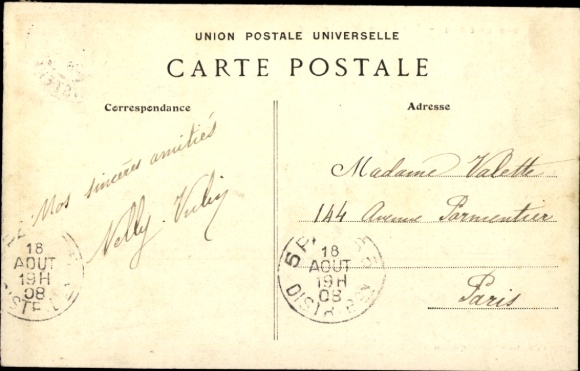 UNION POSTALE UNIVERSELLE
CARTE POSTALE
Correspondance
Adresse
Nos sincères amitiés
Nelly
Madame Valette
144 Avenue Parmentier
Paris
18
AOUT
19H
08
DISTR
18
AOUT
19H
08
DISTR